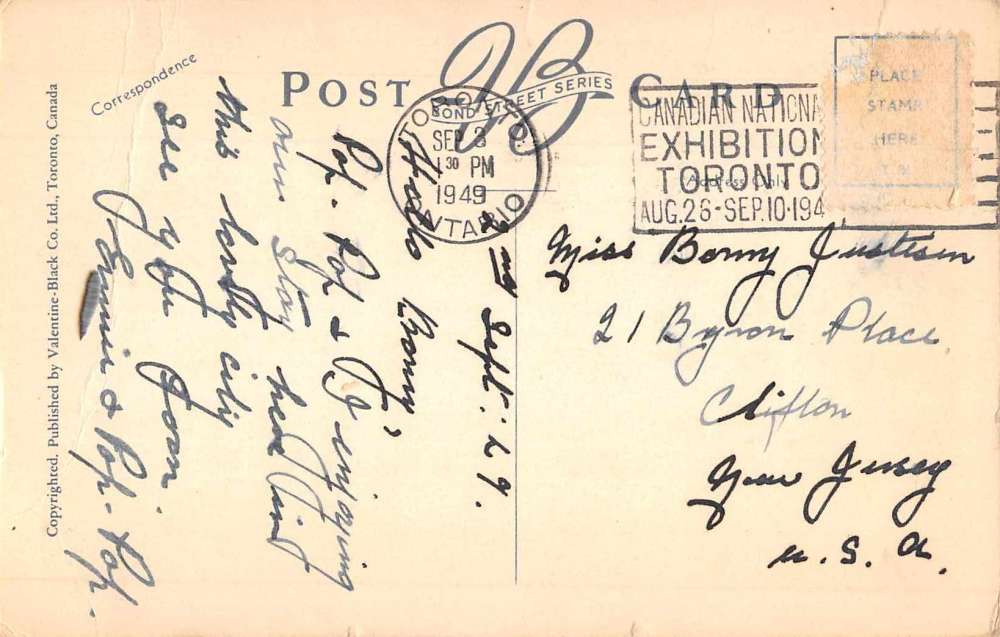 POST CARD
VB
BOND STREET SERIES
Correspondence
Address Only
PLACE
STAMP
HERE
TORONTO
SEP 3
1 30 PM
1949
ONTARIO
CANADIAN NATIONA
EXHIBITION
TORONTO
AUG.26-SEP.10-194
2nd Sept. 49.
Hallo Bonny,
Pop. Pop & I enjoying
our stay here
this lovely city
see you soon.
& Pop-Pop.
Miss Bonny Justesen
21 Byron Place
Clifton
New Jersey
U.S.A.
Copyrighted, Published by Valentine-Black Co. Ltd., Toronto, Canada